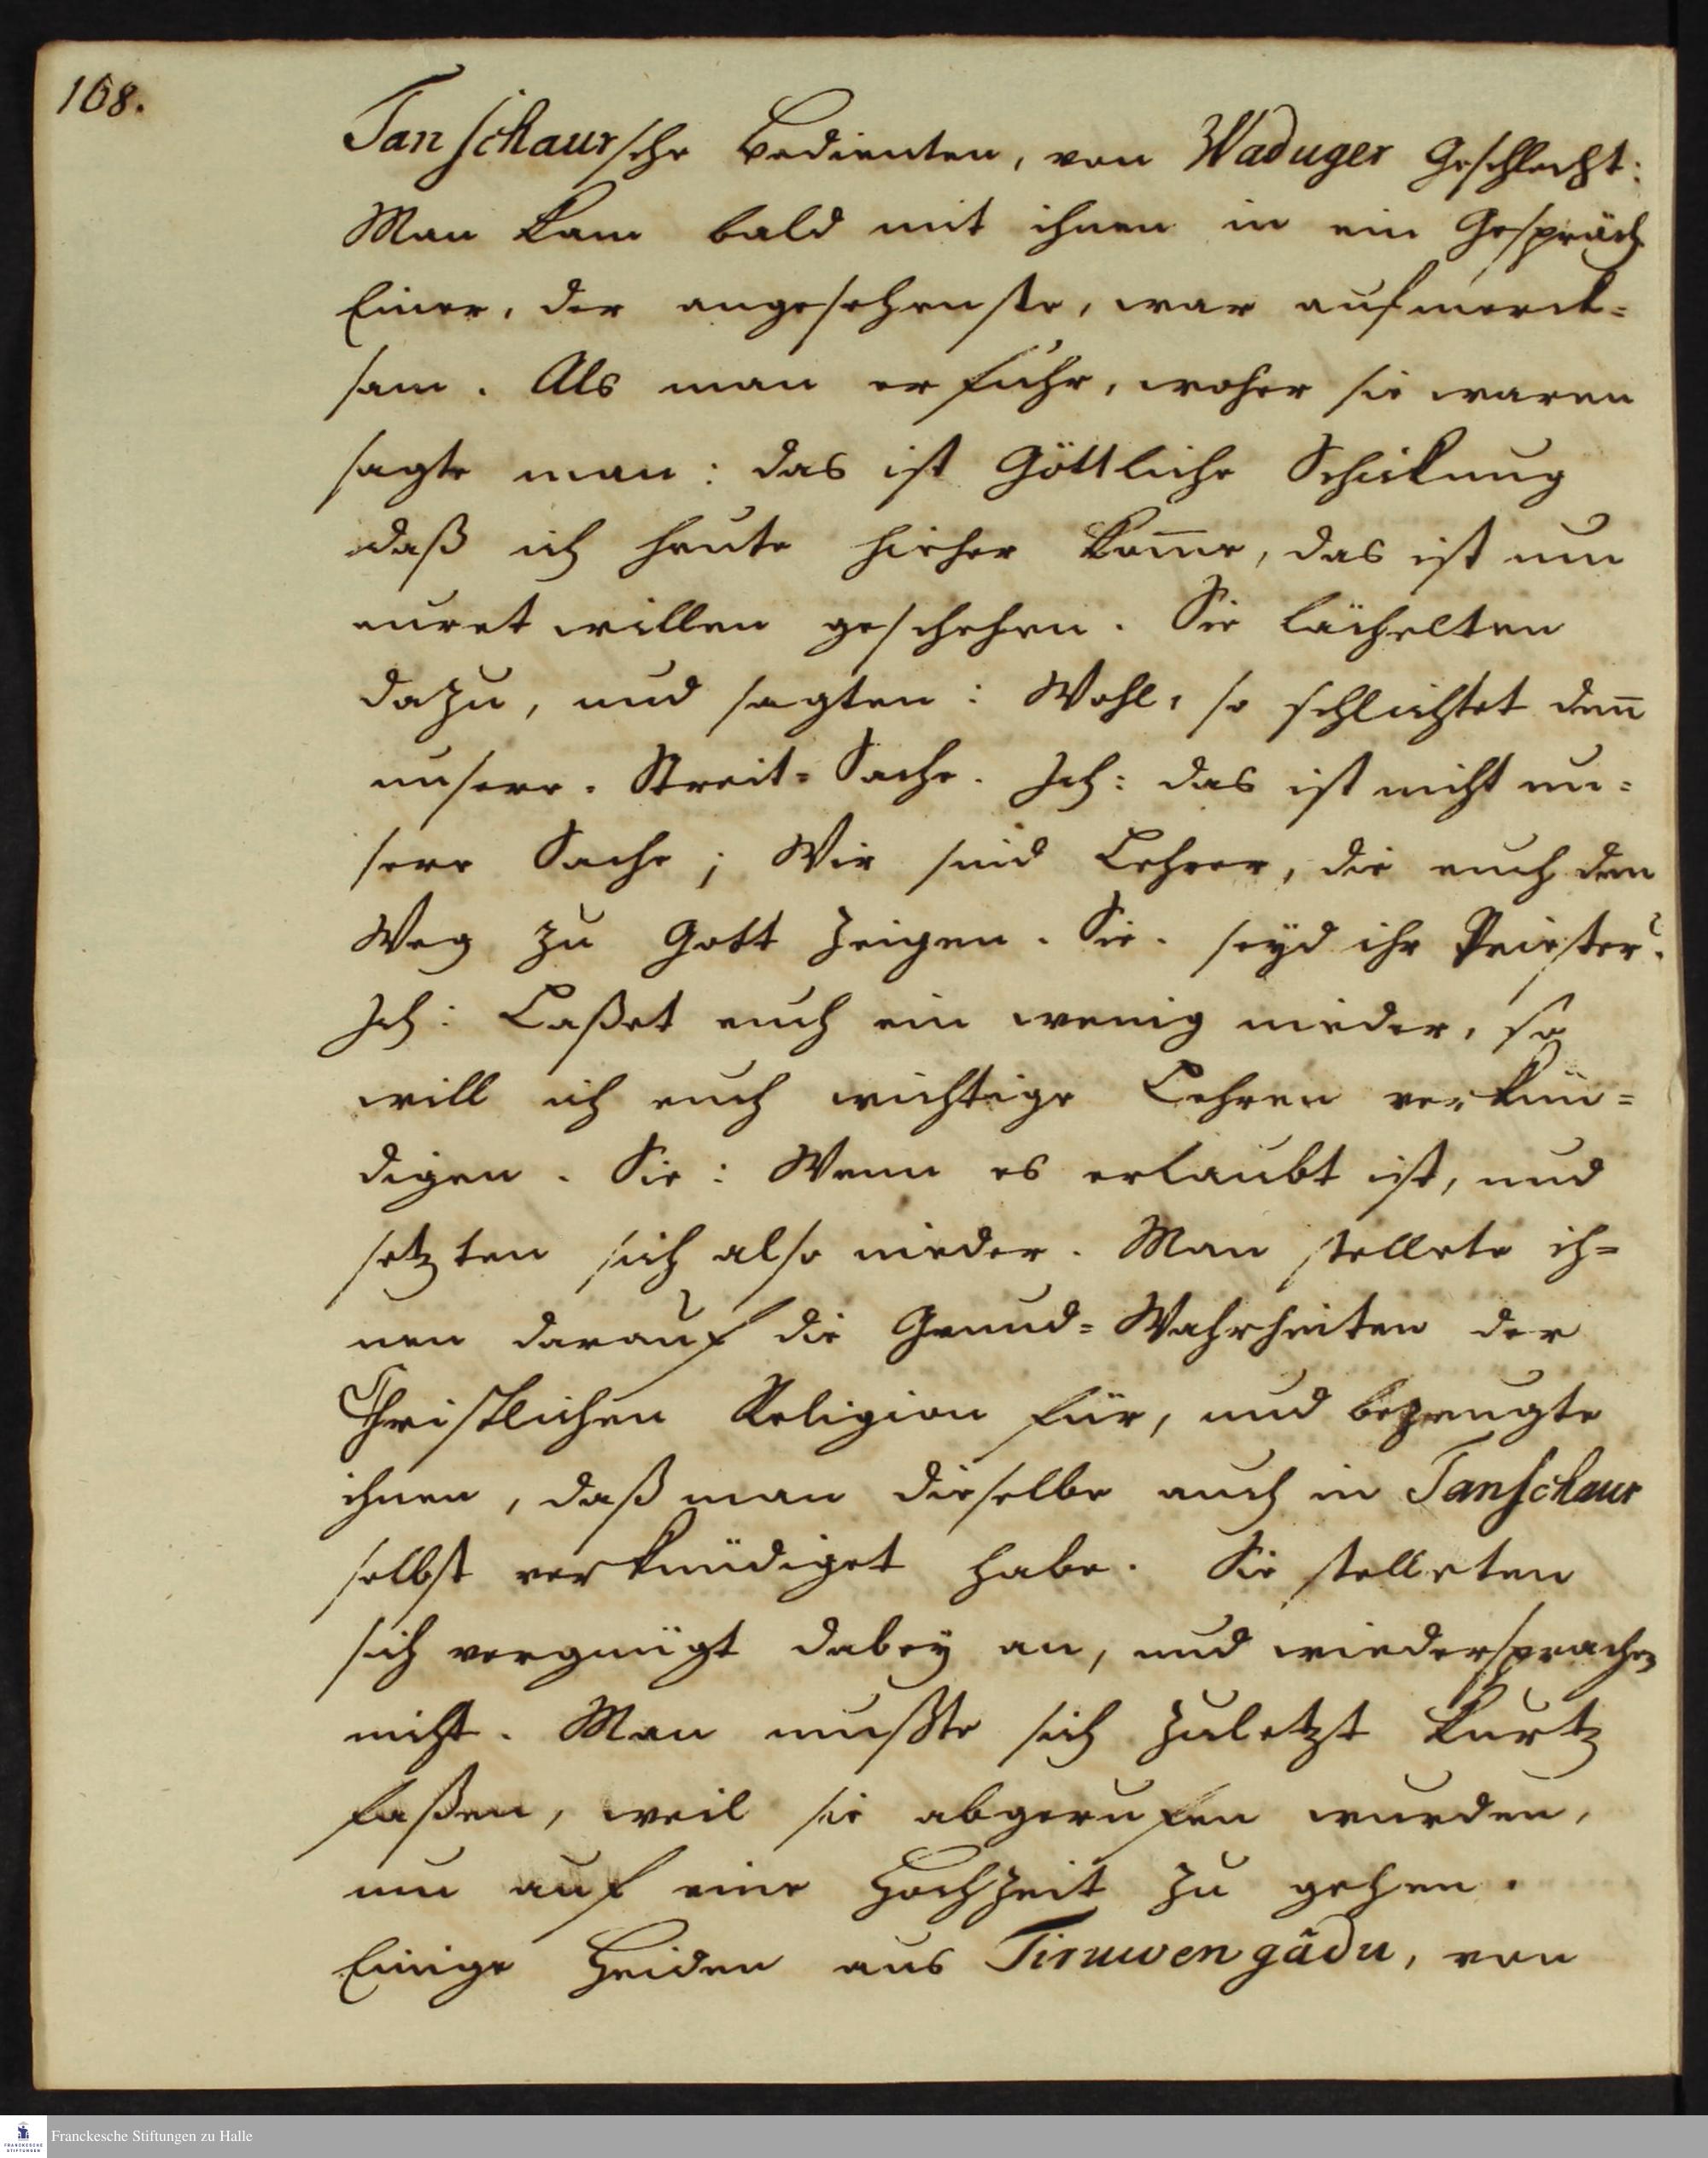 168.
Tanschaursche Bedienten, von Waduger Geschlecht:
Man kam bald mit ihnen in ein Gespräch
Einer, der angesehenste, war aufmerck=
sam. Als man erfuhr, woher sie waren
sagte man: das ist Göttliche Schickung
daß ich heute hieher kom̄e, das ist um
euret willen geschehen. Sie lächelten
dazu, und sagten: Wohl, so schlichtet den̄
unsere. Streit=Sache. Ich: das ist nicht un=
sere Sache; Wir sind Lehrer, die euch den
Weg zu Gott zeigen. Sie. seyd ihr Priester?
Ich: Laßet euch ein wenig nieder, so
will ich euch wichtige Lehren verkün=
digen. Sie: Wenn es erlaubt ist, und
setzten sich also nieder. Man stellete ih=
nen darauf die Grund=Wahrheiten der
Christlichen Religion für, und bezeugte
ihnen, daß man dieselbe auch in Tanschaur
selbst verkündiget habe. Sie stelleten
sich vergnügt dabey an, und wiedersprachen
nicht. Man mußte sich zuletzt kurtz
faßen, weil sie abgerufen wurden,
um auf eine Hochzeit zu gehen.
Einige Heiden aus Tiruwengâdu, von
Franckesche Stiftungen zu Halle
FRANCKESCHE
STIFTUNGEN